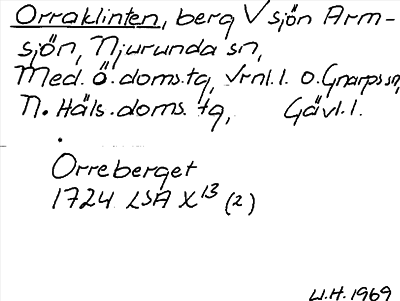 Orraklinten, berg V sjön Arm-
sjön, Njurunda sn,
Med. ö. doms. tg, Vrnl. l. o. Gnarps sn,
N. Häls. doms. tg, Gävl. l.
Orreberget
1724 LSA X 13 (2)
W.H. 1969